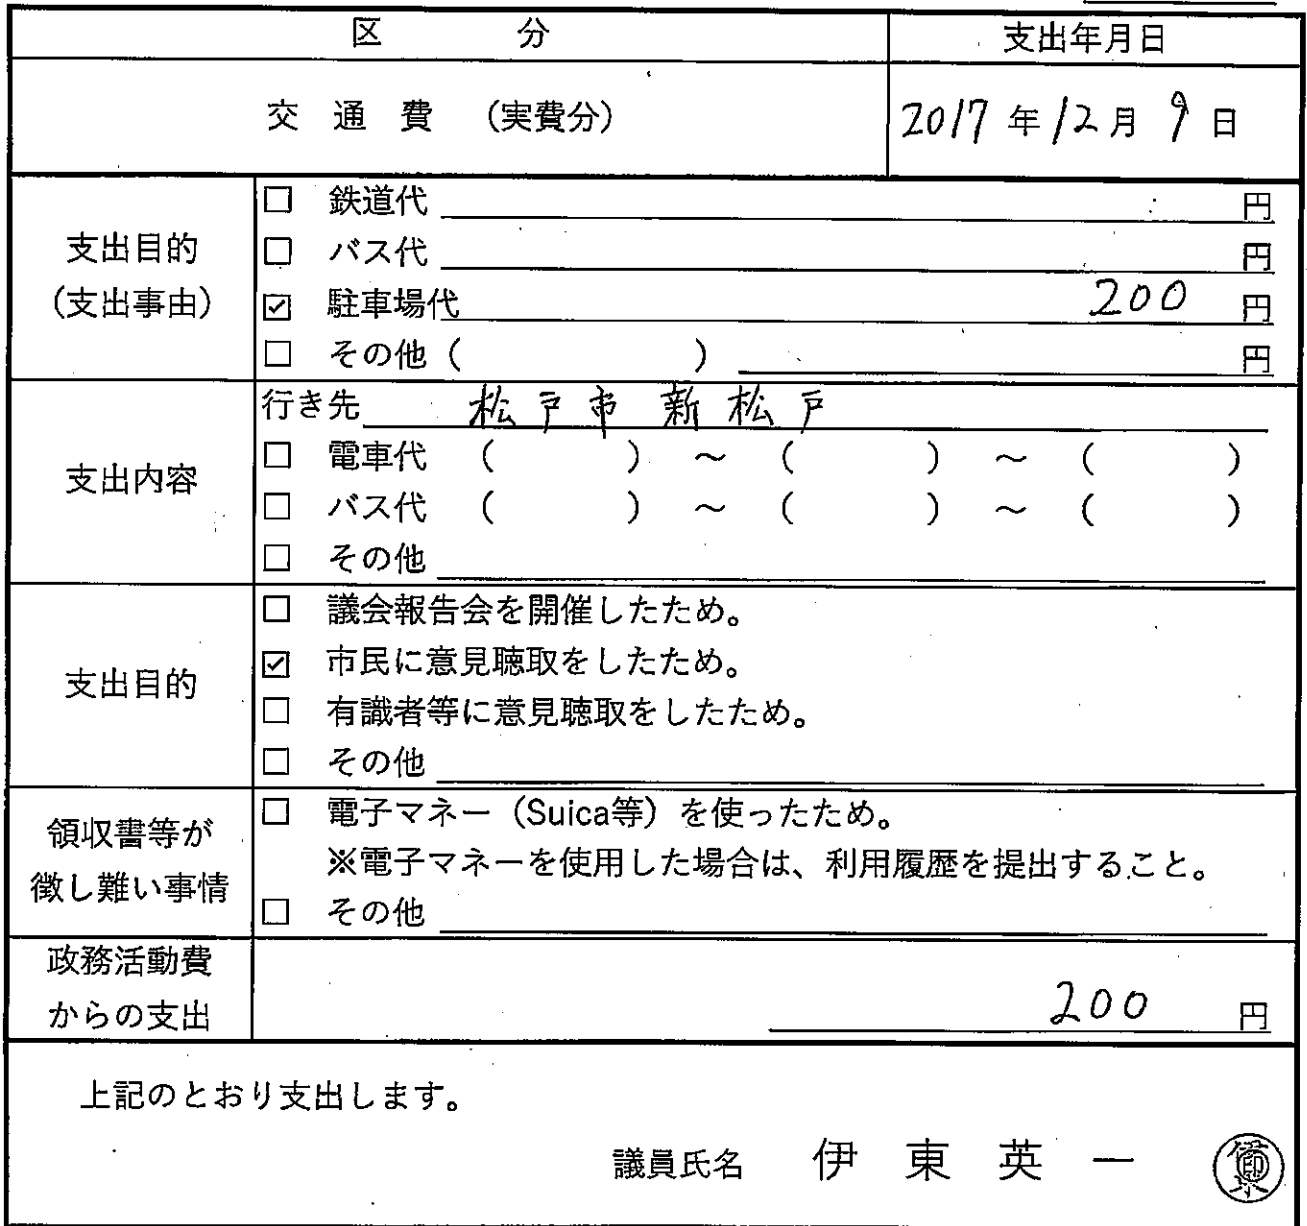 区 分 支出年月日
交通費 (実費分) 2017年12月9日
支出目的
(支出事由)
□ 鉄道代 円
□ バス代 円
☑ 駐車場代 200 円
□ その他 ( ) 円
支出内容
行き先 松戸市 新松戸
□ 電車代 ( ) ～ ( ) ～ ( )
□ バス代 ( ) ～ ( ) ～ ( )
□ その他
支出目的
□ 議会報告会を開催したため。
☑ 市民に意見聴取をしたため。
□ 有識者等に意見聴取をしたため。
□ その他
領収書等が
徴し難い事情
□ 電子マネー (Suica等) を使ったため。
※電子マネーを使用した場合は、利用履歴を提出すること。
□ その他
政務活動費
からの支出
200 円
上記のとおり支出します。
議員氏名 伊東英一 印